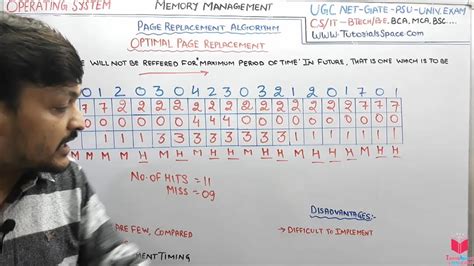 OPERATING SYSTEM
MEMORY MANAGEMENT
UGC NET-GATE-PSU-UNIV.EXAM
CS/IT-BTECH/BE, BCA, MCA, BSC....
WWW.TUTORIALSPACE.COM
PAGE REPLACEMENT ALGORITHM
OPTIMAL PAGE REPLACEMENT
E WILL NOT BE REFFERED FOR "MAXIMUM PERIOD OF TIME" IN FUTURE, THAT IS ONE WHICH IS TO BE
0 1 2 0 3 0 4 2 3 0 3 2 1 2 0 1 7 0 1
7 7 2 2 2 2 2 2 2 2 2 2 2 2 2 7 7
0 0 0 0 4 4 4 0 0 0 0 0 0 0 0
1 1 1 3 3 3 3 3 3 3 1 1 1 1 1
M M M H M H M H H M H H M H H H M H H
NO. OF HITS = 11
MISS = 09
DISADVANTAGES:-
ARE FEW, COMPARED
→ DIFFICULT TO IMPLEMENT
EMENT TIMING